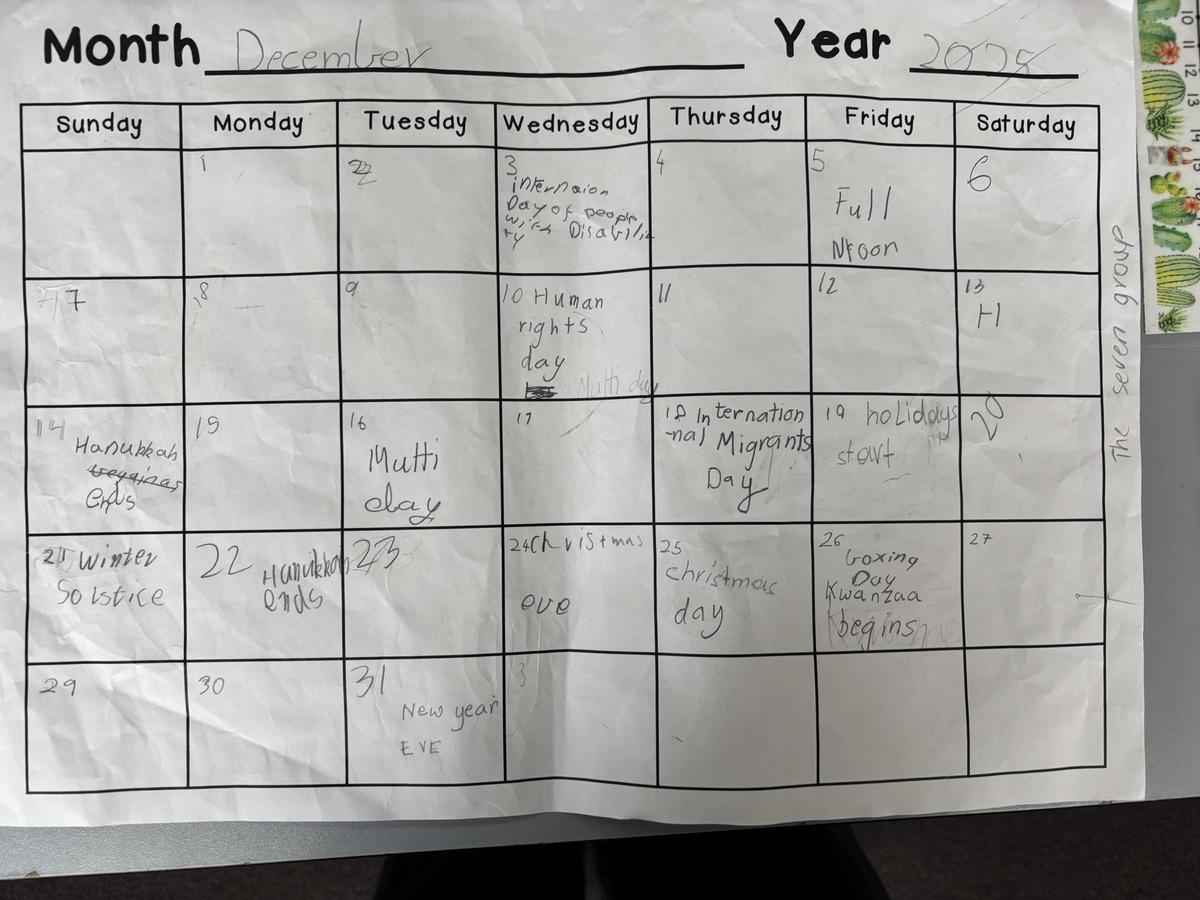 Month December Year 2025
Sunday Monday Tuesday Wednesday Thursday Friday Saturday
1
2
3
internaion
Day of people
with Disabili
ty
4
5
Full
Moon
6
7
8
9
10 Human
rights
day
Multi day
11
12
13
H
14
Hanukkah
begginas
ends
15
16
Multi
day
17
18 Internation
nal Migrants
Day
19 holidays
start
20
21 Winter
Solstice
22
Hanukkah
ends
23
24 Christmas
eve
25
christmas
day
26
boxing
Day
Kwanzaa
begins
27
29
30
31
New year
EVE
3
The seven group
10 11 12 13 14 15